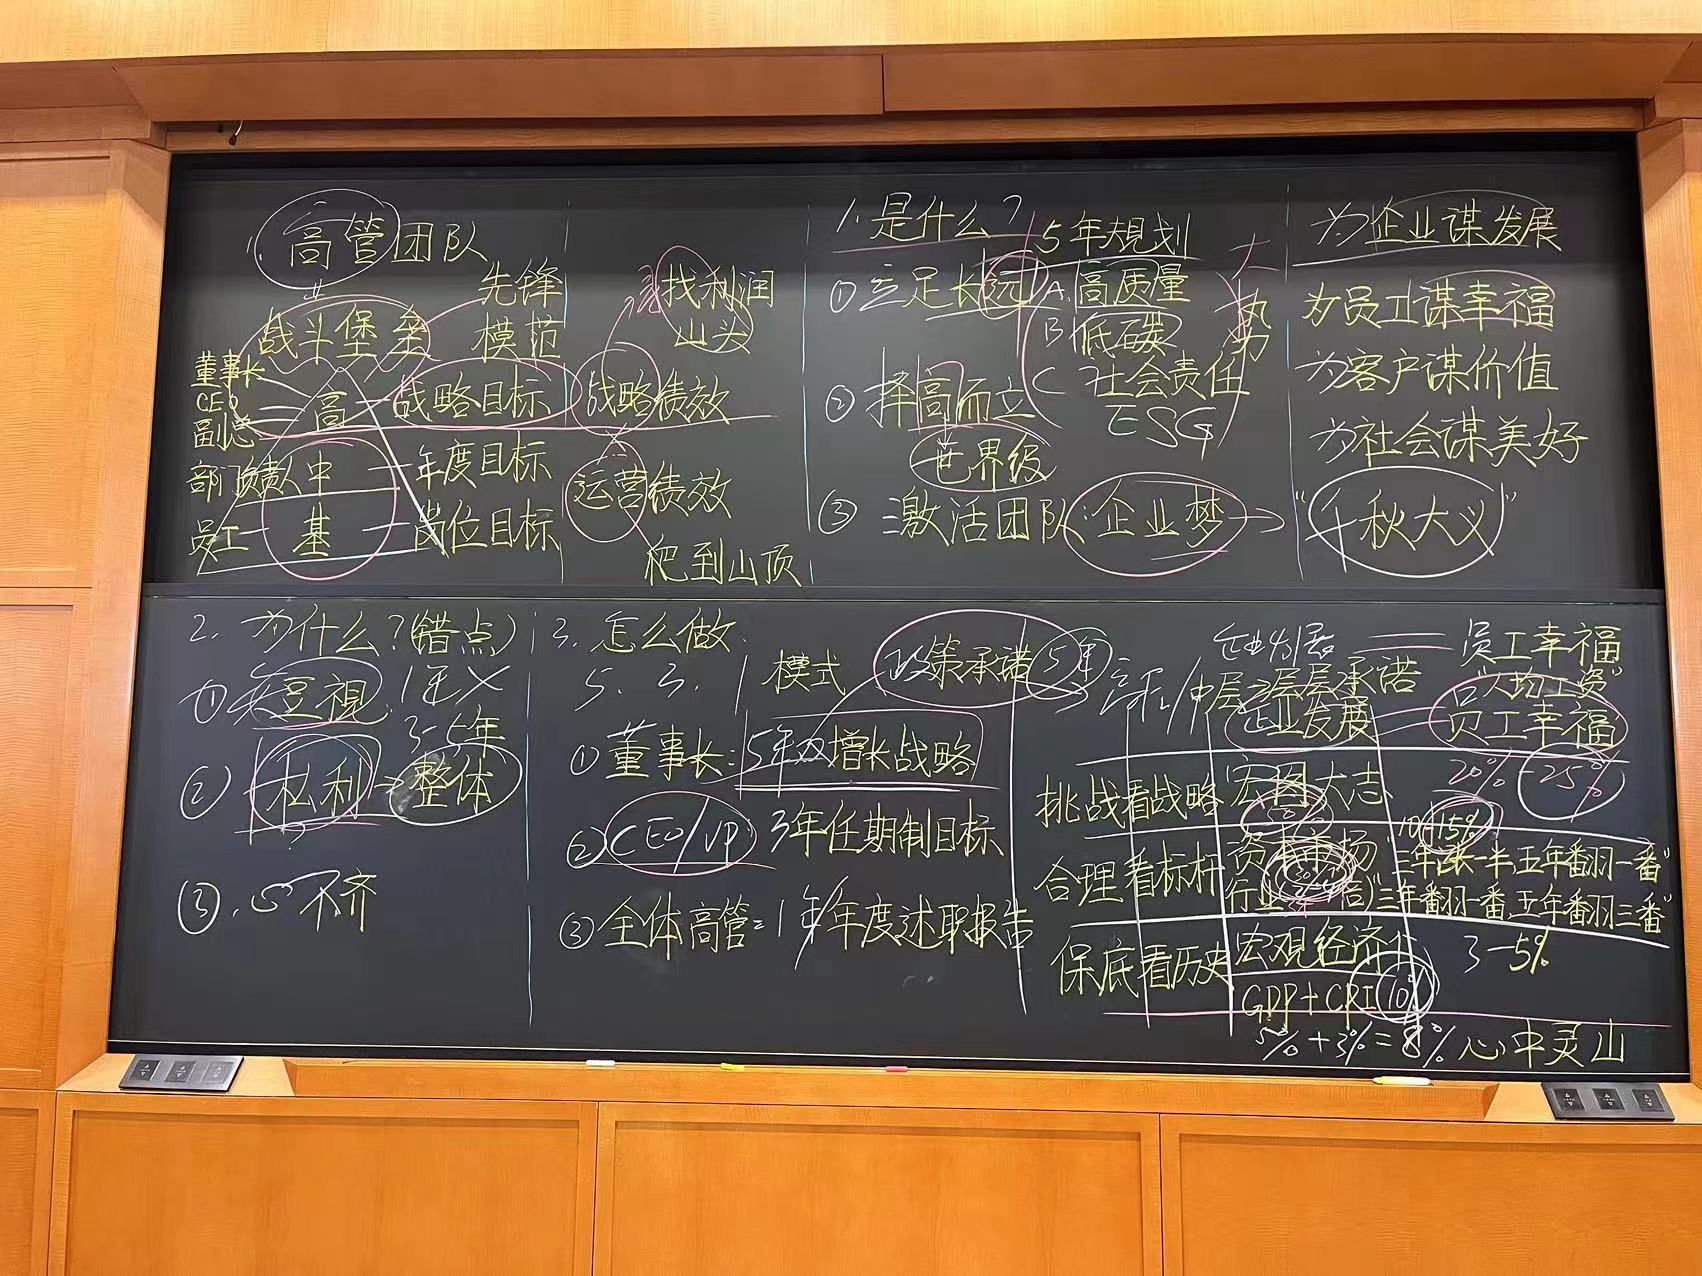 高管团队
先锋
模范
战斗堡垒
董事长
CEO
副总
高
战略目标
部门负责人
中
年度目标
员工
基
岗位目标
找利润
山头
战略绩效
运营绩效
爬到山顶
1. 是什么?
5年规划
① 立足长远
A. 高质量
B 低碳
C 社会责任
ESG
大
势
② 择高而立
世界级
③ 激活团队:企业梦
为企业谋发展
为员工谋幸福
为客户谋价值
为社会谋美好
“千秋大义”
2. 为什么?(错点)
① 短视 1年X
3-5年
② 私利 整体
③. 心不齐
3. 怎么做
5. 3. 1 模式
政策承诺 5年
① 董事长: 5年 增长战略
② CEO/VP 3年任期制目标
③ 全体高管: 1年 年度述职报告
企业发展 员工幸福
高层/中层 层层承诺
“人均工资”
企业发展 员工幸福
挑战看战略 宏图大志 20%-25%
50%
合理看标杆
15%
“三年涨一半,五年翻一番”
行业
三年翻一番,五年翻三番”
保底看历史
宏观经济
3-5%
GDP+CPI 10%
5%+3%=8% 心中灵山